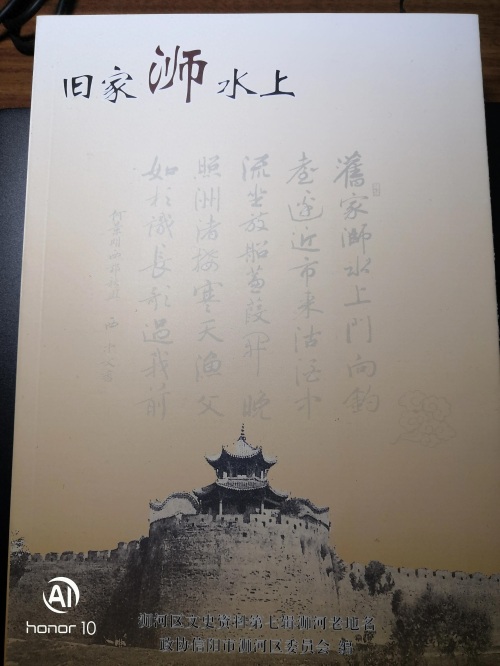 旧家浉水上
舊家溮水上門向釣
臺邊近市来沽酒中
流坐放船蒹葭開晚
照洲渚接寒天漁父
如相識長歌過我前
浉河区文史资料第七辑浉河老地名
政协信阳市浉河区委员会 编
AI
honor 10